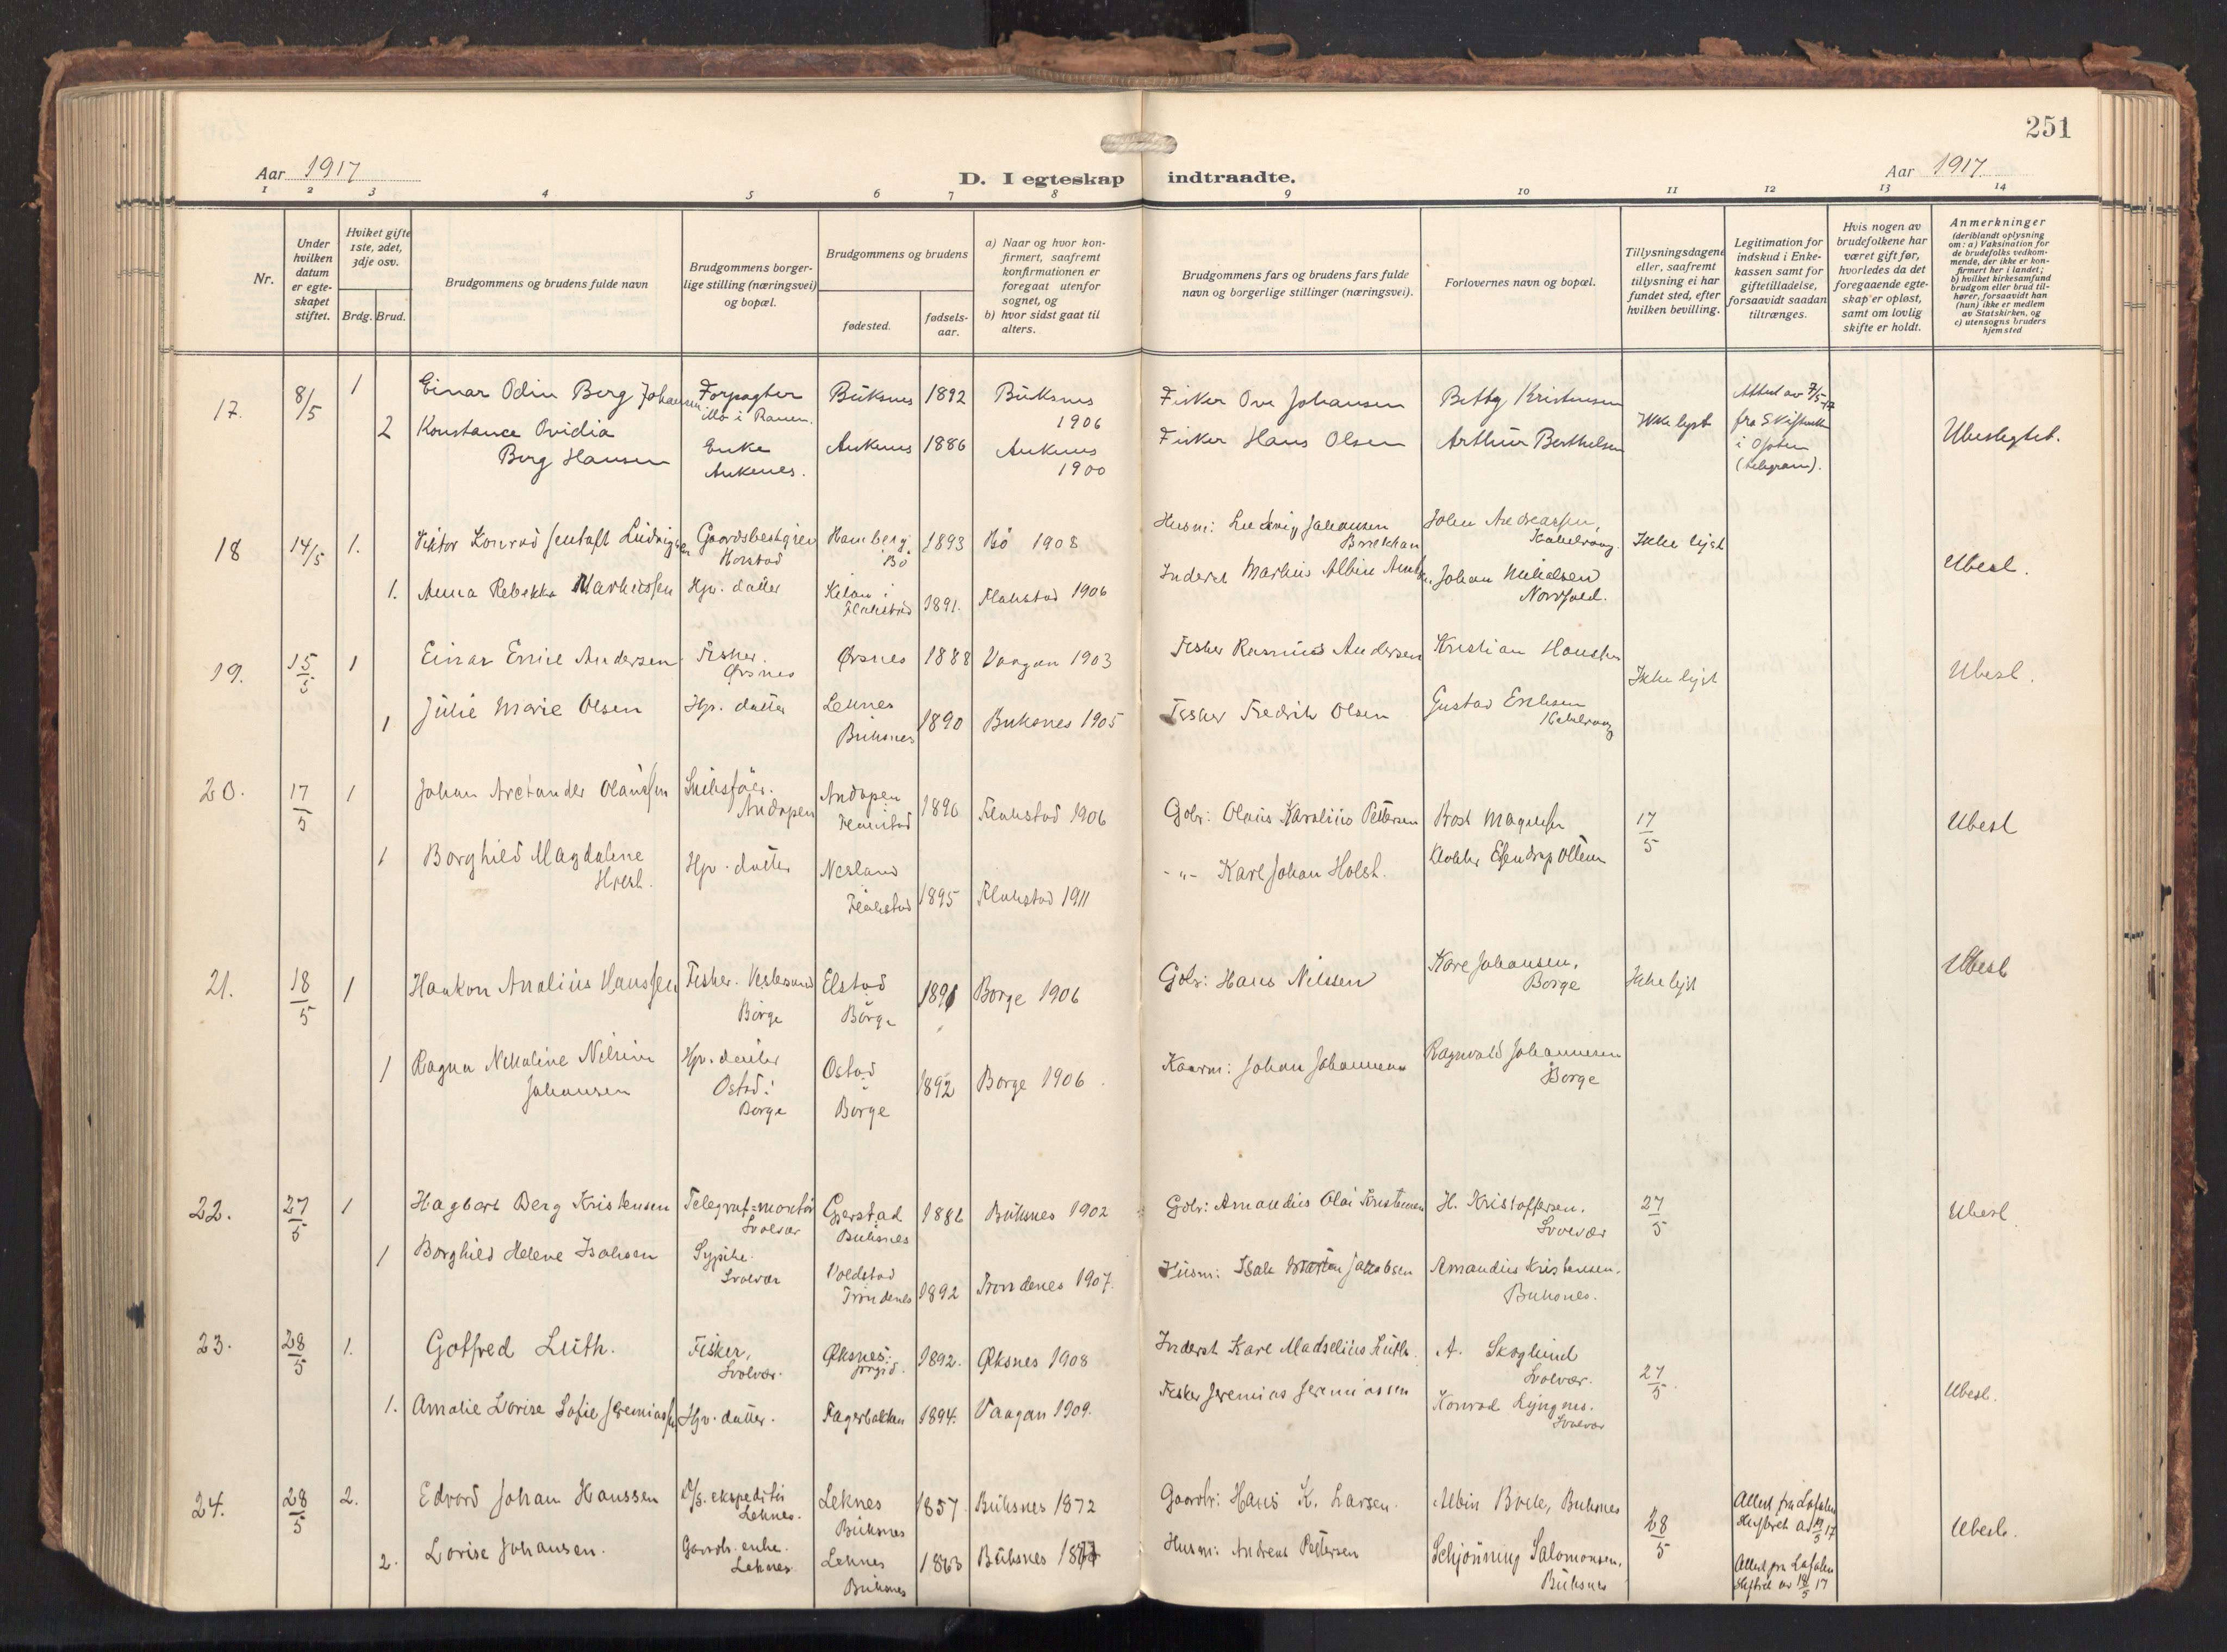 251
Aar 1917
D. I egteskap indtraadte.
Aar 1917.
1 2 3 4 5 6 7 8 9 10 11 12 13 14
Nr.
Under hvilken datum er egteskapet stiftet.
Hviket gifte 1ste, 2det, 3dje osv.
Brdg. Brud.
Brudgommens og brudens fulde navn
Brudgommens borgerlige stilling (næringsvei) og bopæl.
Brudgommens og brudens
fødested.
fødselsaar.
a) Naar og hvor konfirmert, saafremt konfirmationen er foregaat utenfor sognet, og
b) hvor sidst gaat til alters.
Brudgommens fars og brudens fars fulde navn og borgerlige stillinger (næringsvei).
Forlovernes navn og bopæl.
Tillysningsdagene eller, saafremt tillysning ei har fundet sted, efter hvilken bevilling.
Legitimation for indskud i Enkekassen samt for giftetilladelse, forsaavidt saadan tiltrænges.
Hvis nogen av brudefolkene har været gift før, hvorledes da det foregaaende egteskap er opløst, samt om lovlig skifte er holdt.
Anmerkninger (deriblandt oplysning om: a) Vaksination for de brudefolks vedkommende, der ikke er konfirmert her i landet; b) hvilket kirkesamfund brudgom eller brud tilhører, forsaavidt han (hun) ikke er medlem av Statskirken, og c) utensogns bruders hjemsted
17. 8/5 1 Einar Odin Berg Johansen Forpagter i Ranen. Buksnes 1892 Buksnes 1906 Fisker Ove Johansen Betty Kristensen Ikke lyst Attest av 7/5-17 fra Skifteretten i Ofoten (telegram). Ubeslegtet.
2 Konstance Ovidia Berg Hansen Enke Ankenes. Ankenes 1886 Ankenes 1900 Fisker Hans Olsen Arthur Berthelsen
18 14/5 1. Viktor Konrad Ludvigsen Gaardsbestyrer Horstad Bø 1893 Bø 1908 Husm: Ludvig Johansen John Andreassen, Kabelvaag. Ikke lyst Ubesl.
1. Anna Rebekka Markussen Hjv. datter Flakstad 1891. Flakstad 1906 Inderst Markus Albin Johan Mikalsen
19. 15/5 1 Einar Emil Andersen Fisker. Ørsnes Ørsnes 1888 Vaagan 1903 Fisker Rasmus Andersen Kristian Ikke lyst Ubesl.
1 Julie Marie Olsen Hjv. datter Leknes Buksnes 1890 Buksnes 1905 Fisker Fredrik Olsen Gustav Eriksen Kabelvaag
20. 17/5 1 Johan Arctander Olaussen Andopen Andopen Flakstad 1890 Flakstad 1906 Gbr: Olaus Karolius Pettersen 17/5 Ubesl
1 Borghild Magdalene Holst. Hjv. datter Nesland Flakstad 1895 Flakstad 1911 -"- Karl Johan Holst.
21. 18/5 1 Haakon Analius Hanssen Fisker. Vestersand Borge Elstad Borge 1891 Borge 1906 Gbr: Hans Nilssen Kare Johansen, Borge Ikke lyst Ubesl
1 Ragna Nikoline Johansen Hjv. datter Ostad: Borge Ostad Borge 1892 Borge 1906 Kaarm: Johan Johannesen Ragnvald Johannesen Borge
22. 27/5 1 Hagbart Berg Kristensen Telegraf-montør Svolvær Gjerstad Buksnes 1886 Buksnes 1902 Gbr: Amandus Olai Kristensen H. Kristoffersen. Svolvær 27/5 Ubesl.
1 Borghild Helene Isaksen Sypike. Svolvær Voldstad Trondenes 1892 Trondenes 1907. Husm: Isak Martin Jakobsen Amandus Kristensen. Buksnes.
23. 28/5 1. Gotfred Luth. Fisker, Svolvær. Øksnes: 1892. Øksnes 1908 Inderst Karl Madselius Luth. A. Skoglund Svolvær. 27/5. Ubesl.
1. Amalie Lovise Sofie Jeremiassen Hjv. datter. Fagerbakken 1894. Vaagan 1909. Fisker Jeremias Jeremiassen Konrad Lyngmo. Svolvær
24. 28/5 2. Edvard Johan Hanssen D/S. ekspeditør Leknes. Leknes Buksnes 1857 Buksnes 1872 Gaardbr: Hans K. Larsen. Albin Buksnes 28/5 Attest fra Lofoten skifteret av 19/5 17 Ubesl.
2. Lovise Johansen. Gaardbr. enke. Leknes Leknes Buksnes 1863 Buksnes Husm: Andreas Pettersen Schjønning Salomonsen, Buksnes Attest fra Lofoten skifteret av 18/5 17